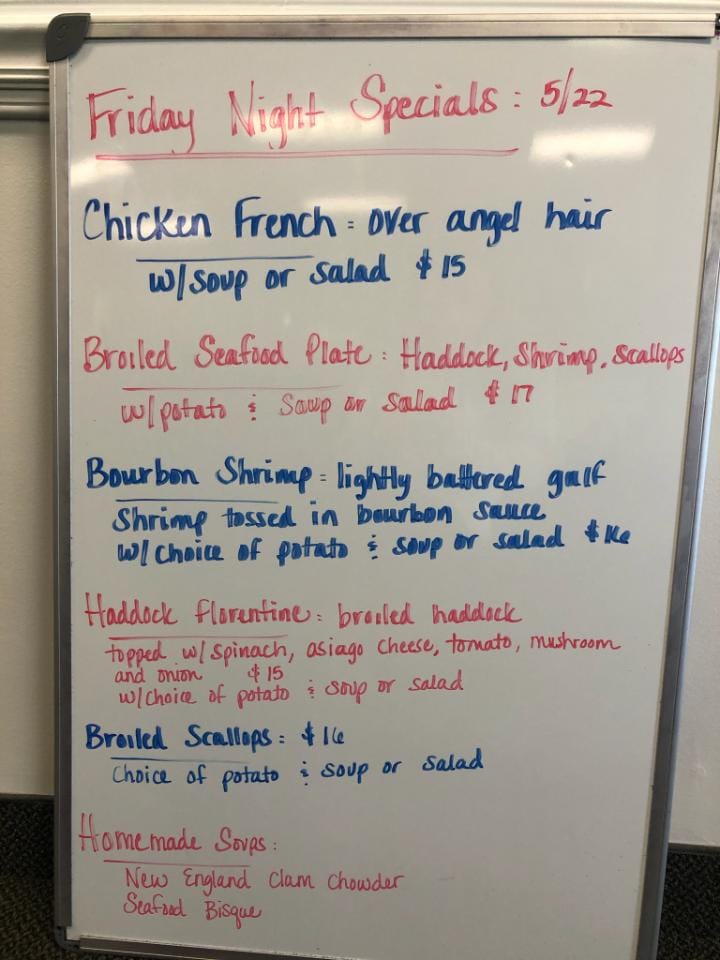 Friday Night Specials: 5/22
Chicken French: over angel hair
w/soup or salad $15
Broiled Seafood Plate: Haddock, Shrimp, Scallops
w/potato & Soup or Salad $17
Bourbon Shrimp: lightly battered gulf
Shrimp tossed in bourbon sauce
w/choice of potato & soup or salad $16
Haddock florentine: broiled haddock
topped w/spinach, asiago cheese, tomato, mushroom
and onion $15
w/choice of potato & soup or salad
Broiled Scallops: $16
Choice of potato & soup or salad
Homemade Soups:
New England Clam Chowder
Seafood Bisque